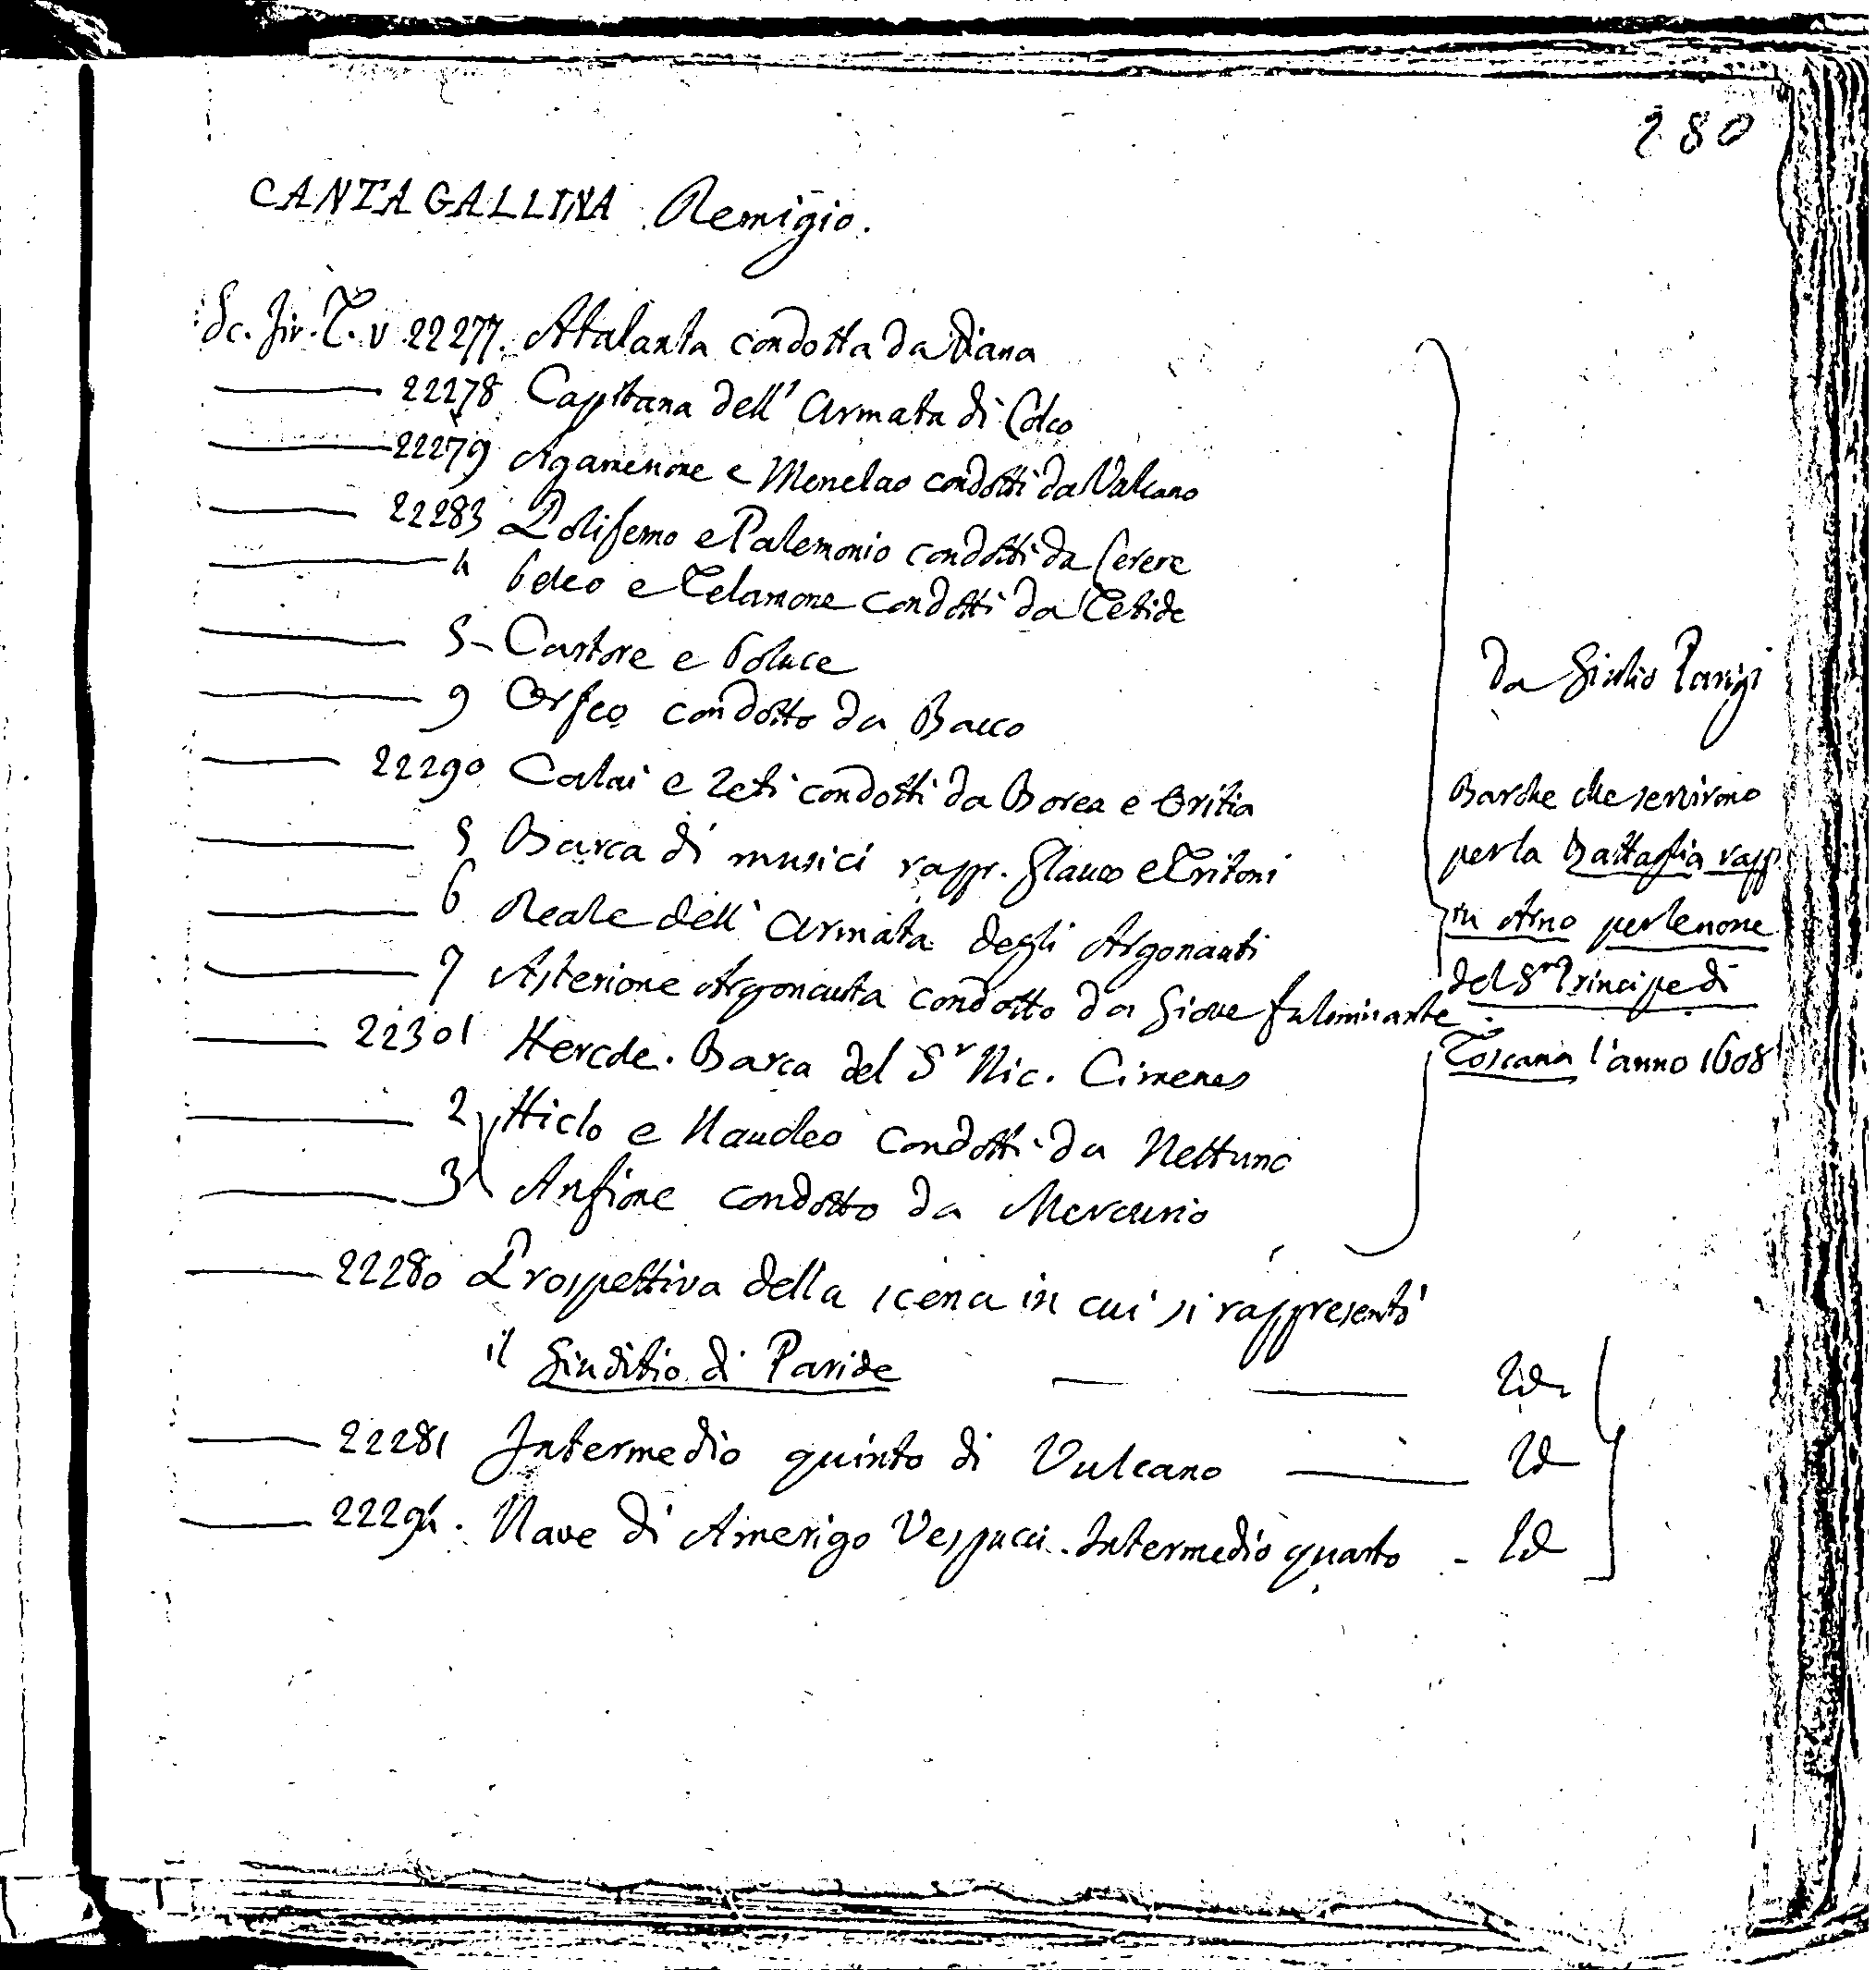 280
CANTAGALLINA Remigio.
Sc. Fir. T. V 22277. Atalanta condotta da Diana
22278 Capitana dell' Armata di Colco
22279 Agamenone e Menelao condotti da Vulcano
22283 Polifemo e Palemonio condotti da Cerere
4 Peleo e Telamone condotti da Tetide
5 - Castore e Poluce
9 Orfeo condotto da Bacco
22290 Calai e Zeti condotti da Borea e Oritia
5 Barca di musici rappr. Glauco e Tritoni
6 Reale dell' armata degli Argonauti
7 Asterione Argonauta condotto da Giove fulminante
22301 Hercole. Barca del Sr Nic. Cimenes
2 Hiclo e Naupleo condotti da Nettuno
3 Anfione condotto da Mercurio
da Giulio Parigi
Barche che servirono
per la Battaglia rapp.
in Arno per le nozze
del Sr Principe di
Toscana l'anno 1608
22280 Prospettiva della scena in cui si rappresentò
il Giuditio di Paride — — Id.
22281 Intermedio quinto di Vulcano — Id
22294. Nave di Amerigo Vespucci. Intermedio quarto - Id